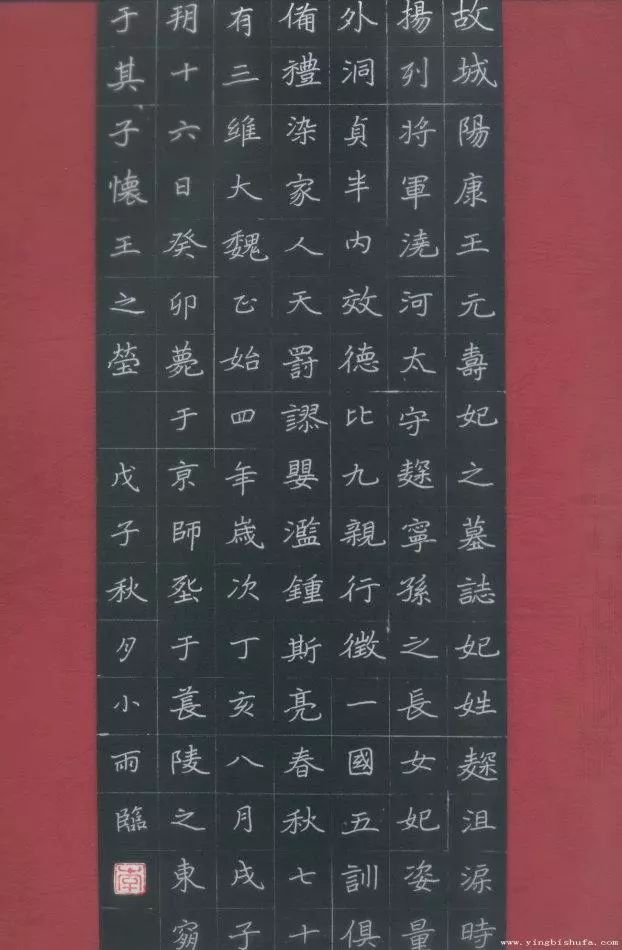 故城陽康王元壽妃之墓誌妃姓麹沮渠時
揚列將軍澆河太守麹寧孫之長女妃姿量
外洞貞半内效德比九親行徵一國五訓俱
備禮染家人天罸謬嬰濫鍾斯亮春秋七十
有三維大魏正始四年歲次丁亥八月戊子
朔十六日癸卯薨于京師于萇陵之東
于其子懷王之塋 戊子秋月小雨臨
www.yingbishufa.com